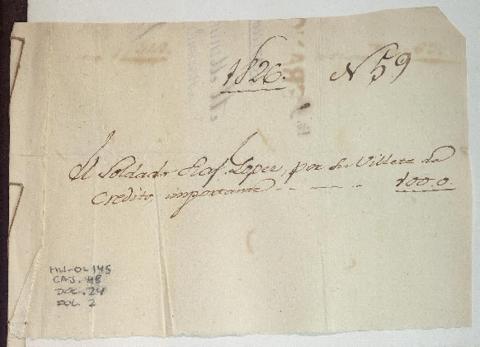 1826. N 59
Al Soldado Lopez, por su Villete de
Credito, importante - - - - - 100.0.
MH-OL 145
CAJ. 48
DOC. 24
FOL. 2